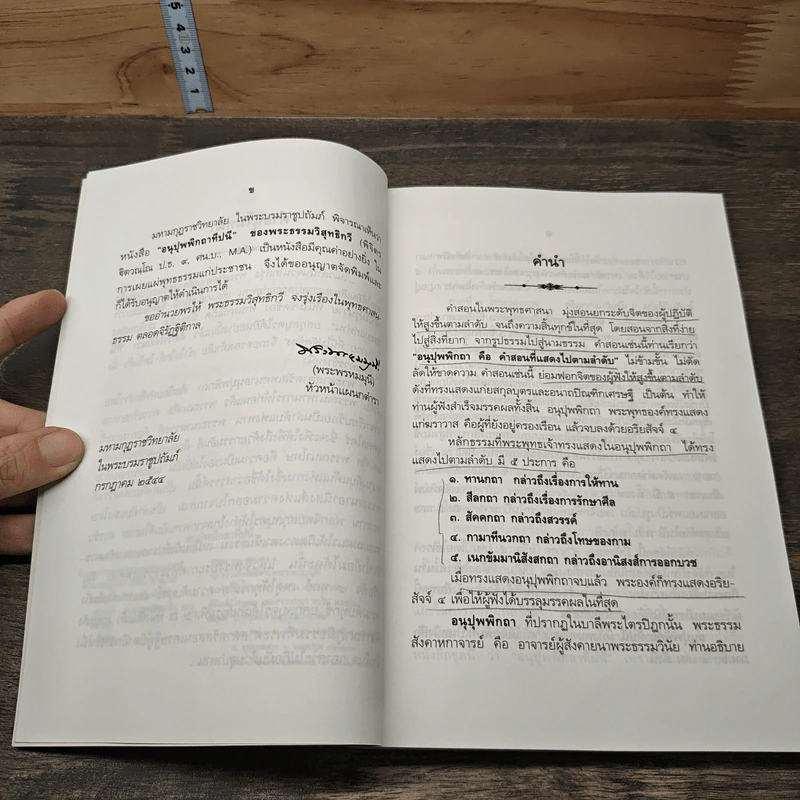 5
4
3
2
1
ข
มหามกุฏราชวิทยาลัย ในพระบรมราชูปถัมภ์ พิจารณาเห็นว่า
หนังสือ "อนุปุพพิกถาทีปนี" ของพระธรรมวิสุทธิกวี (พิจิตร
ฐิตวณฺโณ ป.ธ. ๙, ศน.บ., M.A.) เป็นหนังสือมีคุณค่าอย่างยิ่ง ใน
การเผยแผ่พุทธธรรมแก่ประชาชน จึงได้ขออนุญาตจัดพิมพ์และ
ก็ได้รับอนุญาตให้ดำเนินการได้
ขออำนวยพรให้ พระธรรมวิสุทธิกวี จงรุ่งเรืองในพุทธศาสน-
ธรรม ตลอดจิรัฏฐิติกาล
(พระพรหมมุนี)
หัวหน้าแผนกตำรา
มหามกุฏราชวิทยาลัย
ในพระบรมราชูปถัมภ์
กรกฎาคม ๒๕๔๔
คำนำ
คำสอนในพระพุทธศาสนา มุ่งสอนยกระดับจิตของผู้ปฏิบัติ
ให้สูงขึ้นตามลำดับ จนถึงความสิ้นทุกข์ในที่สุด โดยสอนจากสิ่งที่ง่าย
ไปสู่สิ่งที่ยาก จากรูปธรรมไปสู่นามธรรม คำสอนเช่นนี้ท่านเรียกว่า
"อนุปุพพิกถา คือ คำสอนที่แสดงไปตามลำดับ" ไม่ข้ามขั้น ไม่ตัด
ลัดให้ขาดความ คำสอนเช่นนี้ ย่อมฟอกจิตของผู้ฟังให้สูงขึ้นตามลำดับ
ดังที่ทรงแสดงแก่ยสกุลบุตรและอนาถบิณฑิกเศรษฐี เป็นต้น ทำให้
ท่านผู้ฟังสำเร็จมรรคผลทั้งสิ้น อนุปุพพิกถา พระพุทธองค์ทรงแสดง
แก่ฆราวาส คือผู้ที่ยังอยู่ครองเรือน แล้วจบลงด้วยอริยสัจจ์ ๔
หลักธรรมที่พระพุทธเจ้าทรงแสดงในอนุปุพพิกถา ได้ทรง
แสดงไปตามลำดับ มี ๕ ประการ คือ
๑. ทานกถา กล่าวถึงเรื่องการให้ทาน
๒. สีลกถา กล่าวถึงเรื่องการรักษาศีล
๓. สัคคกถา กล่าวถึงสวรรค์
๔. กามาทีนวกถา กล่าวถึงโทษของกาม
๕. เนกขัมมานิสังสกถา กล่าวถึงอานิสงส์การออกบวช
เมื่อทรงแสดงอนุปุพพิกถาจบแล้ว พระองค์ก็ทรงแสดงอริย-
สัจจ์ ๔ เพื่อให้ผู้ฟังได้บรรลุมรรคผลในที่สุด
อนุปุพพิกถา ที่ปรากฏในบาลีพระไตรปิฎกนั้น พระธรรม
สังคาหกาจารย์ คือ อาจารย์ผู้สังคายนาพระธรรมวินัย ท่านอธิบาย